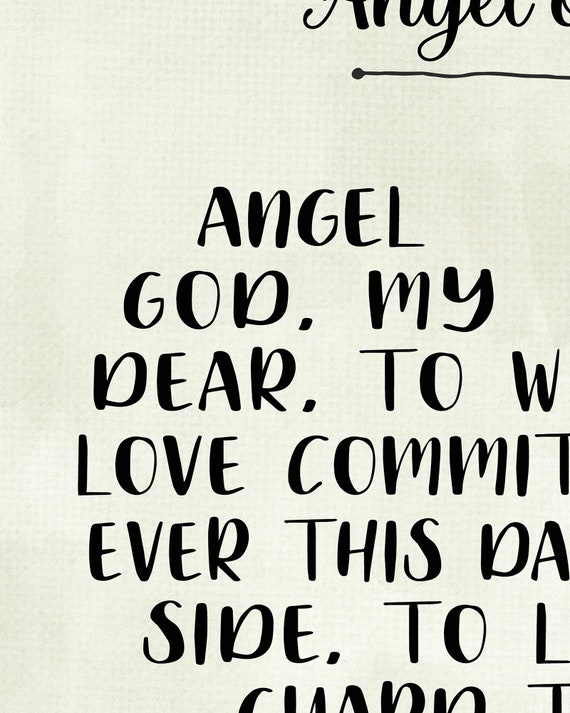 Angel
ANGEL
GOD, MY
DEAR, TO W
LOVE COMMIT
EVER THIS DA
SIDE, TO L
GUARD T